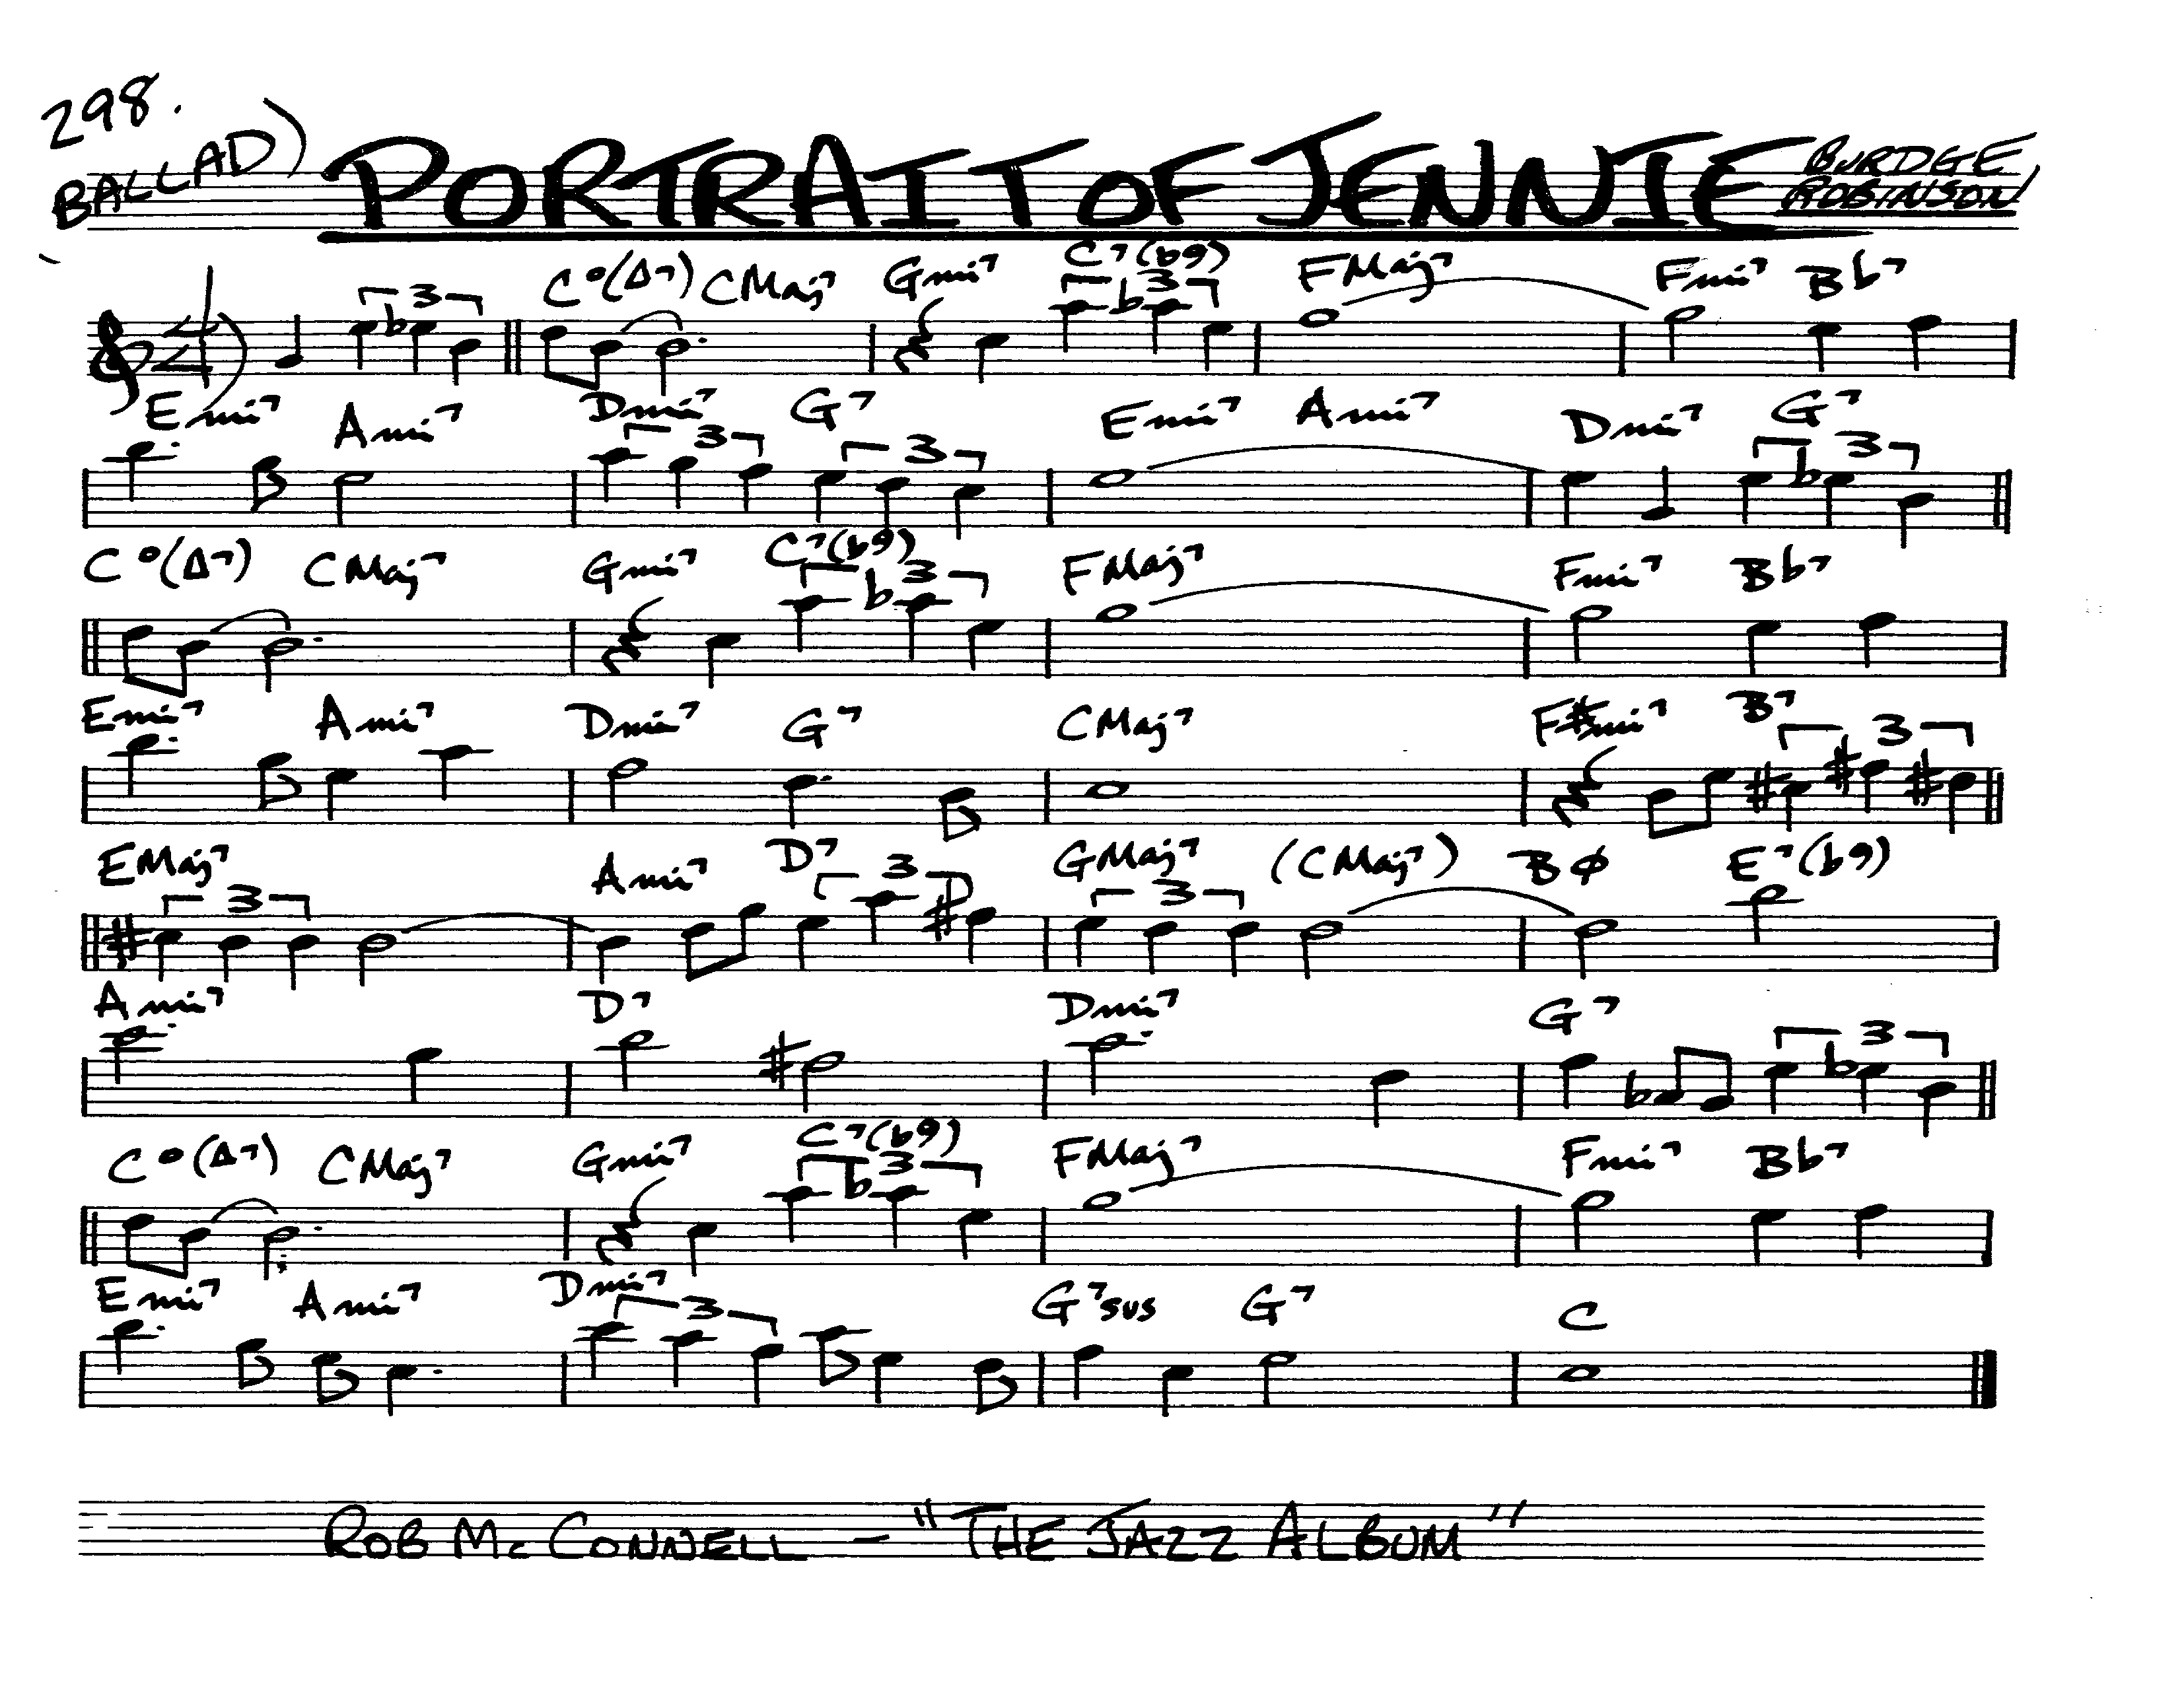 298.
BALLAD)
PORTRAIT OF JENNIE
BURDGE
ROBINSON
C°(Δ7) CMaj7 Gmi7 C7(b9) FMaj7 Fmi7 Bb7
4
4) 3 3
Emi7 Ami7 Dmi7 G7 Emi7 Ami7 Dmi7 G7
3 3 3
C°(Δ7) CMaj7 Gmi7 C7(b9) FMaj7 Fmi7 Bb7
3
Emi7 Ami7 Dmi7 G7 CMaj7 F#mi7 B7
3
EMaj7 Ami7 D7 GMaj7 (CMaj7) BØ E7(b9)
3 3 3
Ami7 D7 Dmi7 G7
3
C°(Δ7) CMaj7 Gmi7 C7(b9) FMaj7 Fmi7 Bb7
3
Emi7 Ami7 Dmi7 G7sus G7 C
3
ROB McCONNELL — "THE JAZZ ALBUM"